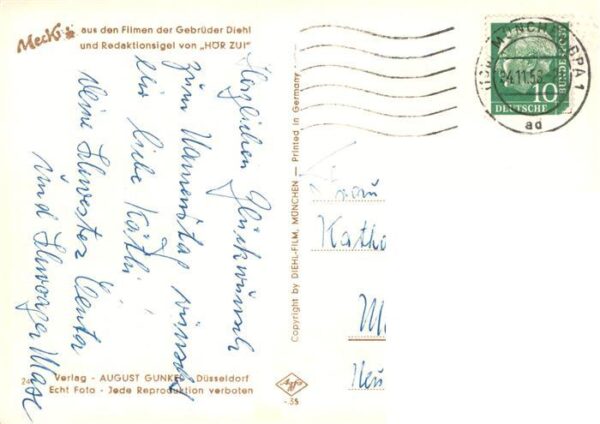 Mecki
aus den Filmen der Gebrüder Diehl
und Redaktionsigel von „HÖR ZU!"
Herzlichen Glückwunsch
zum Namenstag wünscht
Dir liebe Käthi
Deine Schwester Centa
und Schwager Max
24
Verlag - AUGUST GUNKEL - Düsseldorf
Echt Foto - Jede Reproduktion verboten
Copyright by DIEHL-FILM, MÜNCHEN — Printed in Germany
Agfa
-.35
MÜNCHEN BPA 1
ad
10
DEUTSCHE
BUNDESPOST
Frau
Kathi
M
Neu